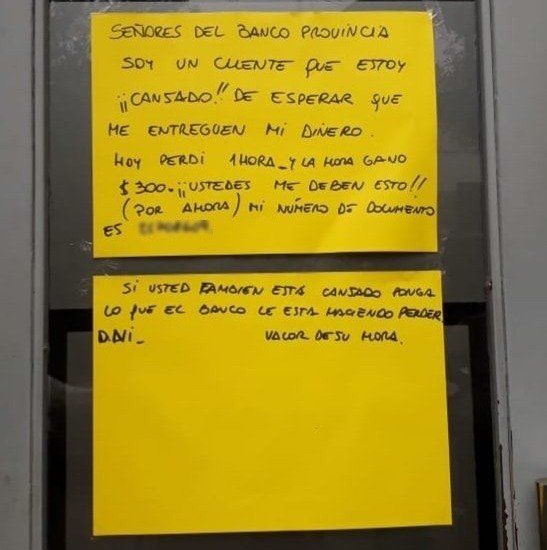 SEÑORES DEL BANCO PROVINCIA
SOY UN CLIENTE QUE ESTOY
¡¡CANSADO!! DE ESPERAR QUE
ME ENTREGUEN MI DINERO.
HOY PERDI 1 HORA_Y LA HORA GANO
$300.¡¡USTEDES ME DEBEN ESTO!!
(POR AHORA) MI NÚMERO DE DOCUMENTO
ES
SI USTED TAMBIEN ESTÁ CANSADO PONGA
LO QUE EL BANCO LE ESTA HACIENDO PERDER
D.N.I_ VALOR DE SU HORA.